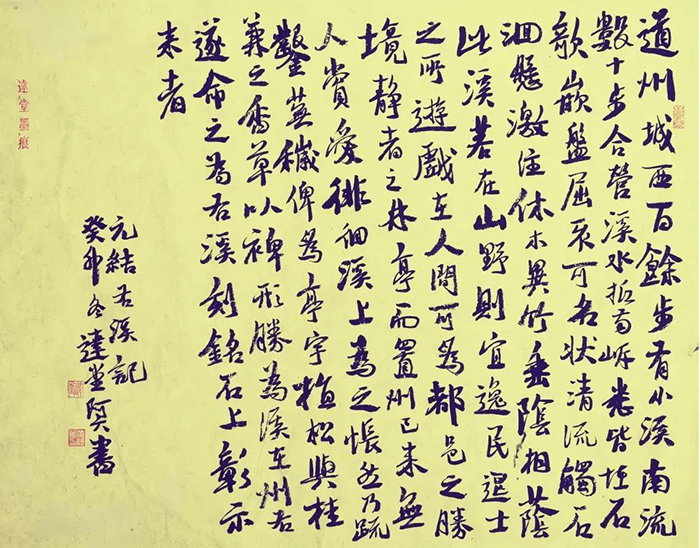 道州城西百餘步有小溪南流
數十步合營溪水抵兩岸悉皆怪石
欹嵌盤屈不可名状清流觸石
洄懸激注休木異竹垂陰相蔭
此溪若在山野則宜逸民退士
之所遊戲在人間可爲都邑之勝
境静者之林亭而置州已来無
人賞愛徘徊溪上爲之悵然乃疏
鑿蕪穢俾爲亭宇植松與桂
兼之香草以裨形勝為溪在州右
遂命之為右溪刻銘石上彰示
来者
元結右溪記
癸卯冬達堂賢書
達堂墨痕